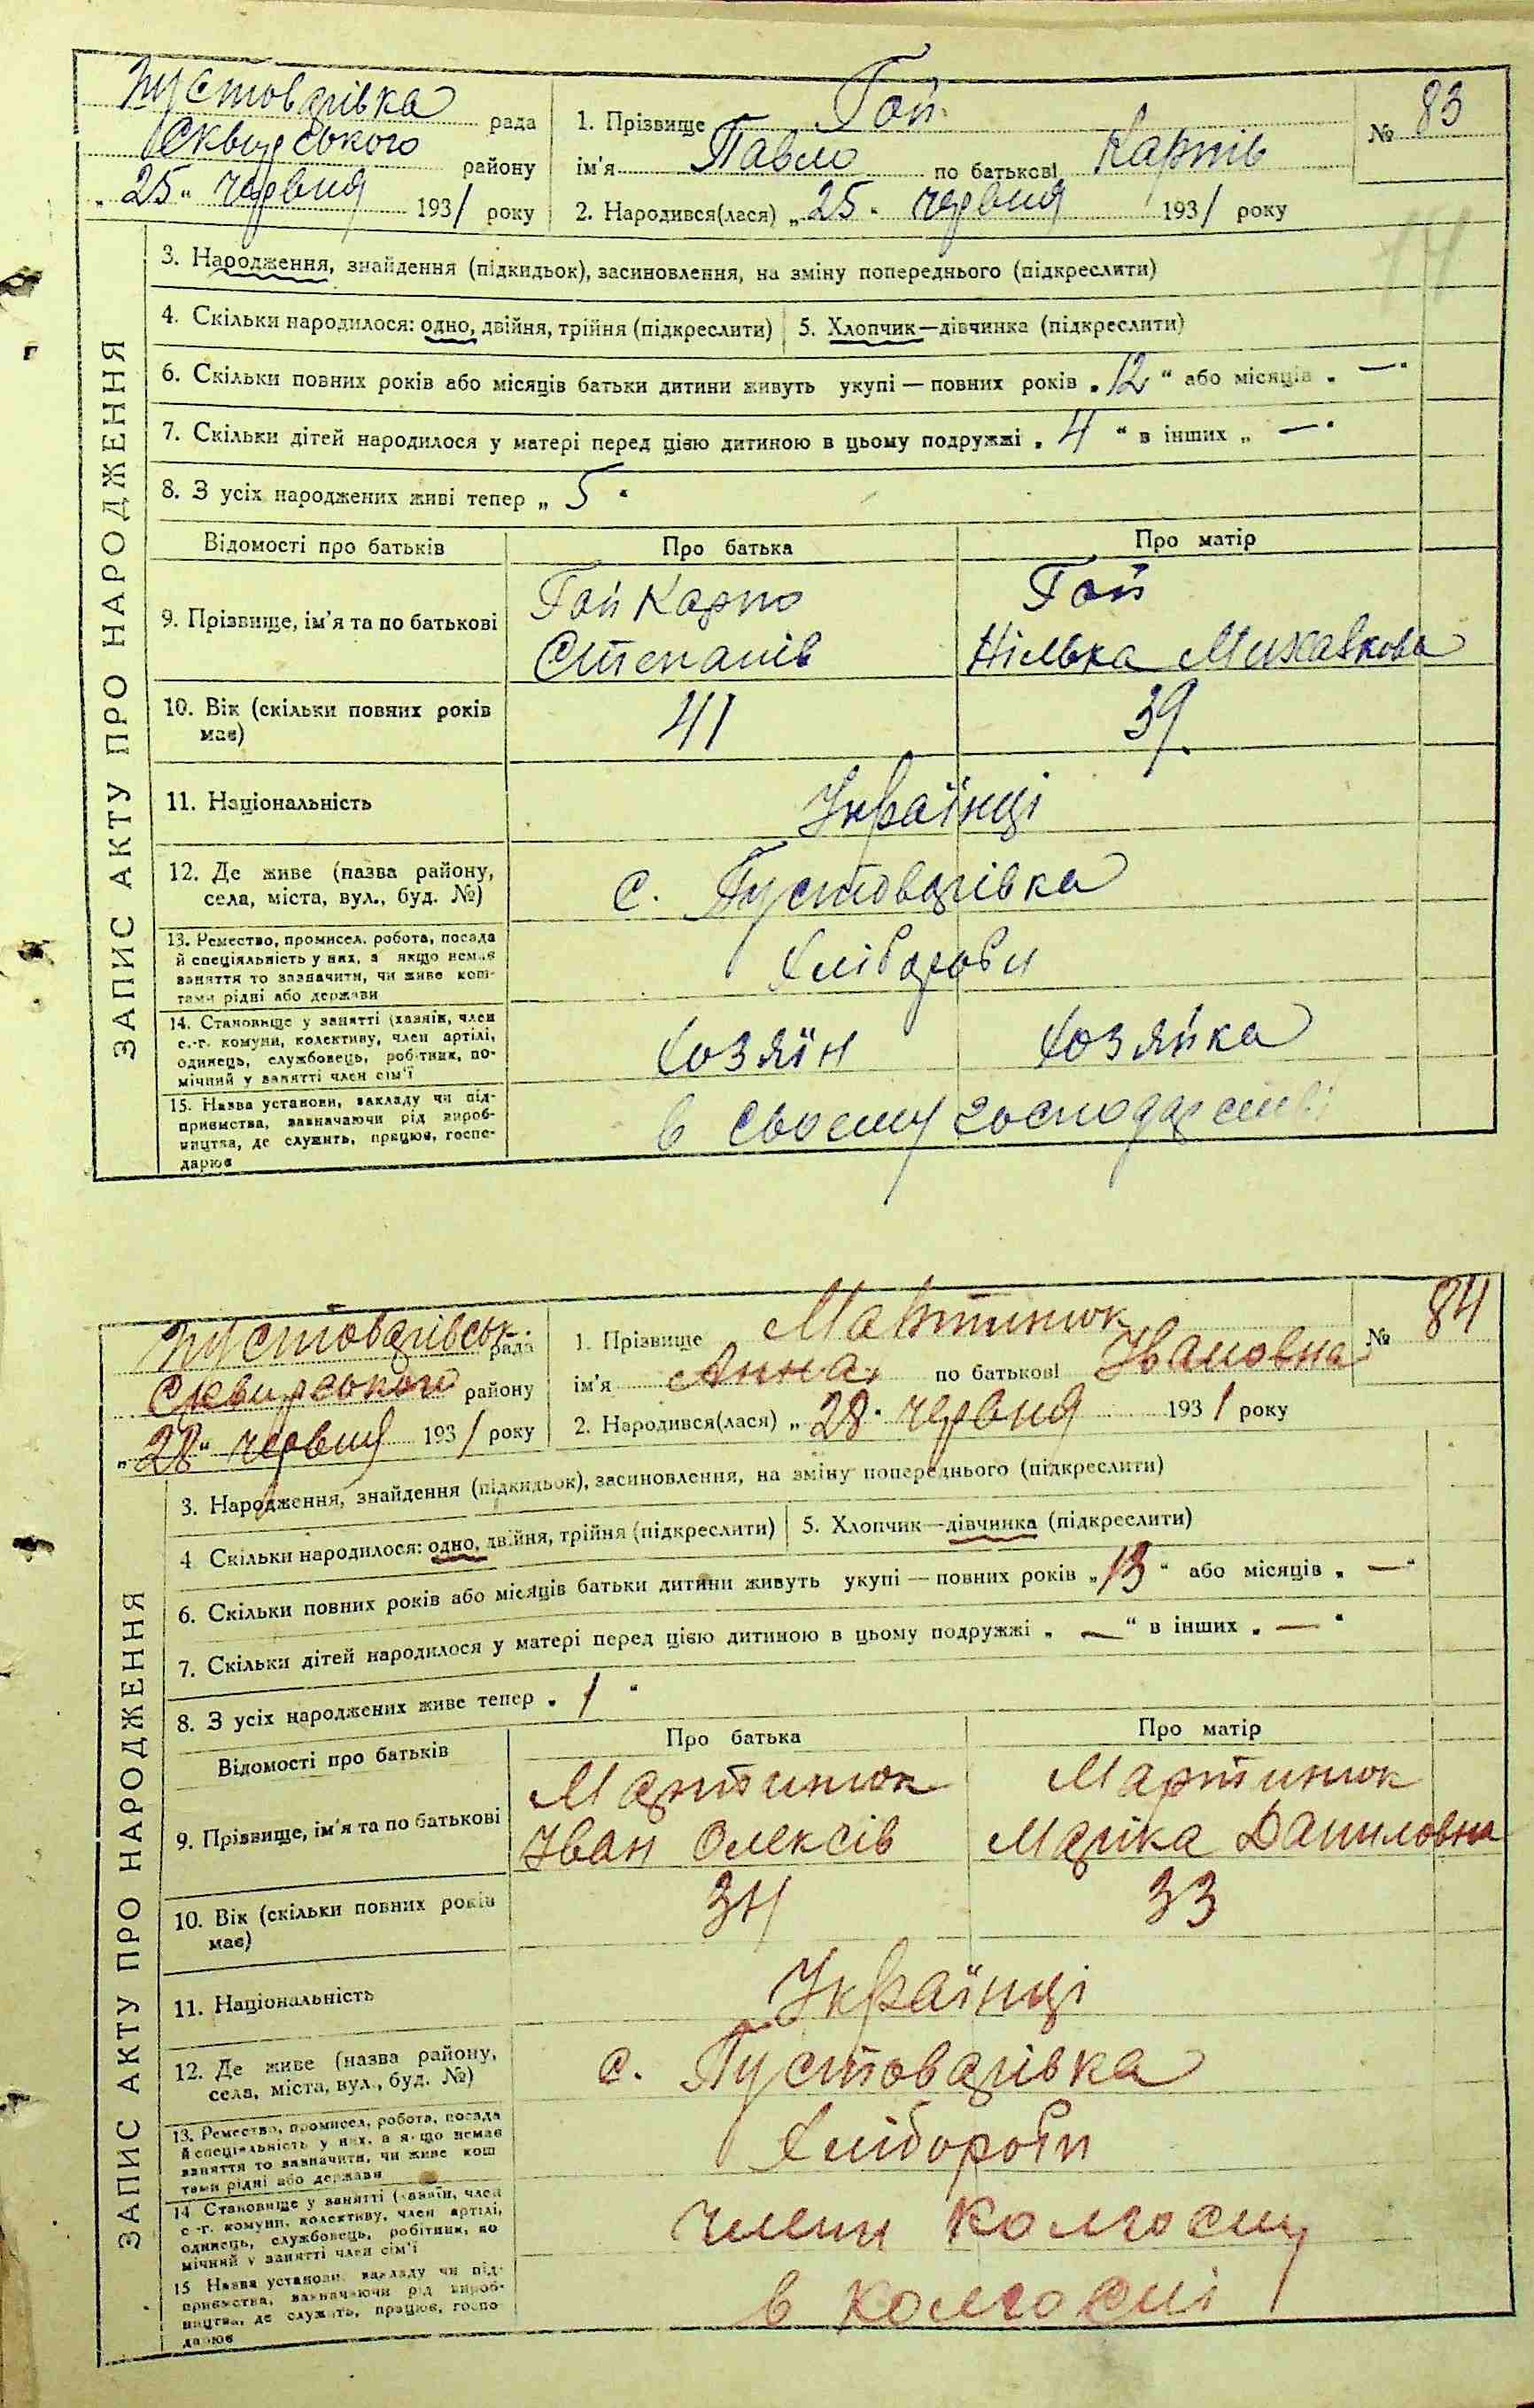 Пустоварівка рада
Сквирського району
„25“ червня 1931 року
1. Прізвище Гой
ім'я Павло по батькові Карпів
2. Народився(лася) „25“ червня 1931 року
№ 83
ЗАПИС АКТУ ПРО НАРОДЖЕННЯ
3. Народження, знайдення (підкидьок), засиновлення, на зміну попереднього (підкреслити)
4. Скільки народилося: одно, двійня, трійня (підкреслити) 5. Хлопчик—дівчинка (підкреслити)
6. Скільки повних років або місяців батьки дитини живуть укупі — повних років „12“ або місяців „—“
7. Скільки дітей народилося у матері перед цією дитиною в цьому подружжі „4“ в інших „—“
8. З усіх народжених живі тепер „5“
Відомості про батьків Про батька Про матір
9. Прізвище, ім'я та по батькові
Гой Карпо Гой
Степанів Мись­кова
10. Вік (скільки повних років має) 41 39
11. Національність Українці
12. Де живе (назва району,
села, міста, вул., буд. №) с. Пустоварівка
13. Ремество, промисел, робота, посада
й спеціяльність у них, а якщо немає
заняття то зазначити, чи живе кош-
тами рідні або держави
Хлібороби
14. Становище у занятті (хазяїн, член
с.-г. комуни, колективу, член артілі,
одинець, службовець, робітник, по-
мічний у занятті член сім'ї
Хозяїн Хозяйка
15. Назва установи, закладу чи під-
приємства, зазначаючи рід вироб-
ництва, де служить, працює, госпо-
дарює
в своєму господарстві
Пустоварівськ. рада
Сквирського району
„28“ червня 1931 року
1. Прізвище Мартинюк
ім'я Анна по батькові Івановна
2. Народився(лася) „28“ червня 1931 року
№ 84
ЗАПИС АКТУ ПРО НАРОДЖЕННЯ
3. Народження, знайдення (підкидьок), засиновлення, на зміну попереднього (підкреслити)
4. Скільки народилося: одно, двійня, трійня (підкреслити) 5. Хлопчик—дівчинка (підкреслити)
6. Скільки повних років або місяців батьки дитини живуть укупі — повних років „13“ або місяців „—“
7. Скільки дітей народилося у матері перед цією дитиною в цьому подружжі „—“ в інших „—“
8. З усіх народжених живе тепер „1“
Відомості про батьків Про батька Про матір
9. Прізвище, ім'я та по батькові
Мартинюк Мартинюк
Іван Олексів Маріка Даниловна
10. Вік (скільки повних років має) 34 33
11. Національність Українці
12. Де живе (назва району,
села, міста, вул., буд. №) с. Пустоварівка
13. Ремество, промисел, робота, посада
й спеціяльність у них, а якщо немає
заняття то зазначити, чи живе кош
тами рідні або держави
Хлібороби
14 Становище у занятті (хазяїн, член
с.-г. комуни, колективу, член артілі,
одинець, службовець, робітник, по
мічний у занятті член сім'ї
члени колгоспу
15 Назва установи, закладу чи під-
приємства, зазначаючи рід вироб-
ництва, де служить, працює, госпо-
дарює
в колгоспі